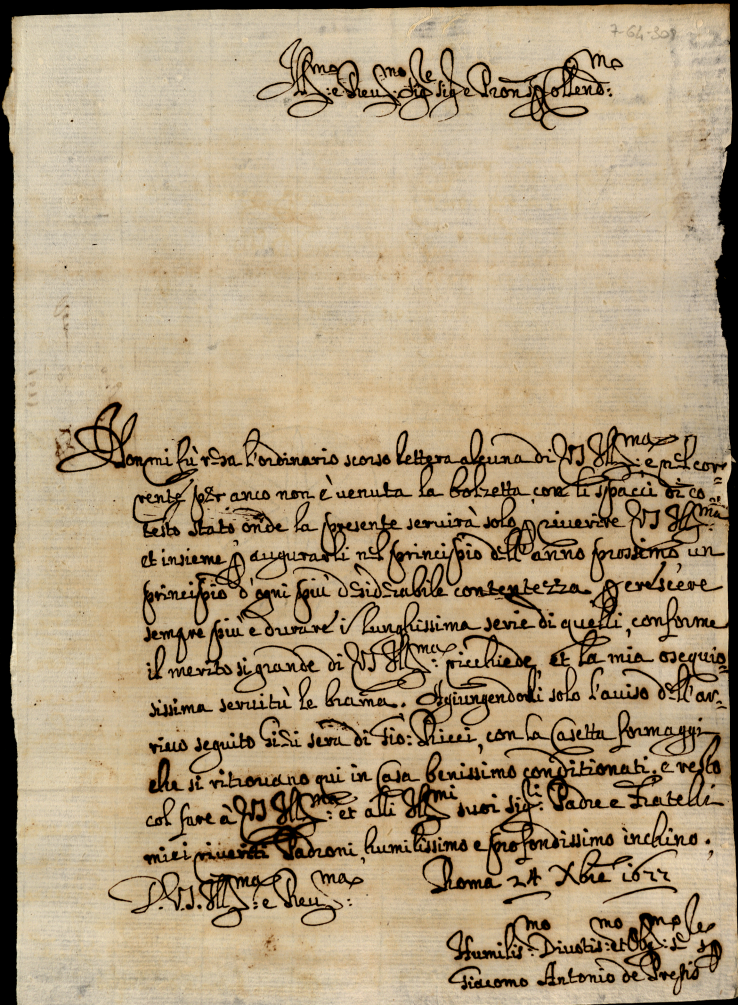 7-64-309
Ill:mo e Reu:mo Sig:re Sig:re e Pron Collend:mo
Non mi fù resa l'ordinario scorso lettera alcuna di VS Ill:ma e nel cor=
rente per anco non è venuta la bolzetta con li spacci di co=
testo stato, onde la presente seruirà solo p riuerire VS Ill:ma
et insieme p augurarli nel principio dell'anno prossimo un
principio d'ogni più desiderabile contentezza p crescere
sempre più e durare i lunghissima serie di quelli, conforme
il merito si grande di VS Ill:ma richiede, et la mia ossequio=
sissima seruitù le brama. Agiungendoli solo l'auiso dell'ar=
riuo seguito hieri sera di Gio: Ricci, con la Casetta formaggi
che si ritrouano qui in Casa benissimo conditionati: e resto
col fare à VS Ill:ma et alli Ill:mi suoi Sig:li Padre e Fratelli
miei riueriti Padroni, humilissimo e profondissimo inchino.
Roma 24 Xbre 1677
D. V.S. Ill:ma e Reu:ma
Humilis:mo Diuotis:mo et Obl:mo Se:re
Giacomo Antonio de